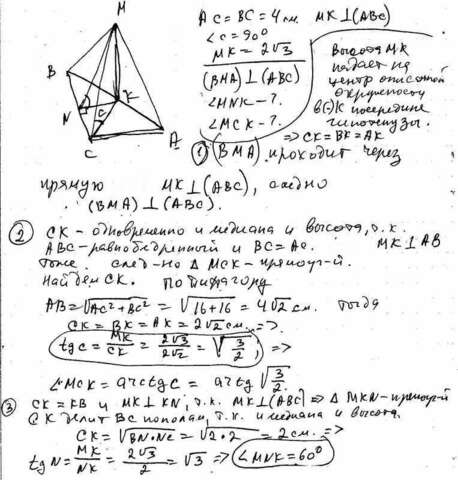 M
B
N
K
C
A
AC = BC = 4 см. MK ⊥ (ABC)
∠C = 90°
MK = 2√3
(BMA) ⊥ (ABC)
∠MNK — ?
∠MCK — ?
Высота MK
падает на
центр описанной
окружности
в(·)K посредине
гипотенузы.
=> CK = BK = AK
① (BMA) проходит через
прямую MK ⊥ (ABC), следно
(BMA) ⊥ (ABC).
② CK – одновременно и медиана и высота, т.к.
ABC – равнобедренный и BC = AC. MK ⊥ AB
тоже. след-но Δ MCK – прямоуг-й.
Найдем CK. По Пифагору
AB = √AC² + BC² = √16+16 = 4√2 см. тогда
CK = BK = AK = 2√2 см. =>
tg C = MK/CK = 2√3/2√2 = √3/2, =>
∠MCK = arctg C = arctg √3/2.
③ CK = KB и MK ⊥ KN, т.к. MK ⊥ (ABC) => Δ MKN – прямоуг-й
CK делит BC пополам, т.к. и медиана и высота.
CK = √BN·NC = √2·2 = 2 см. =>
tg N = MK/NK = 2√3/2 = √3 => ∠MNK = 60°